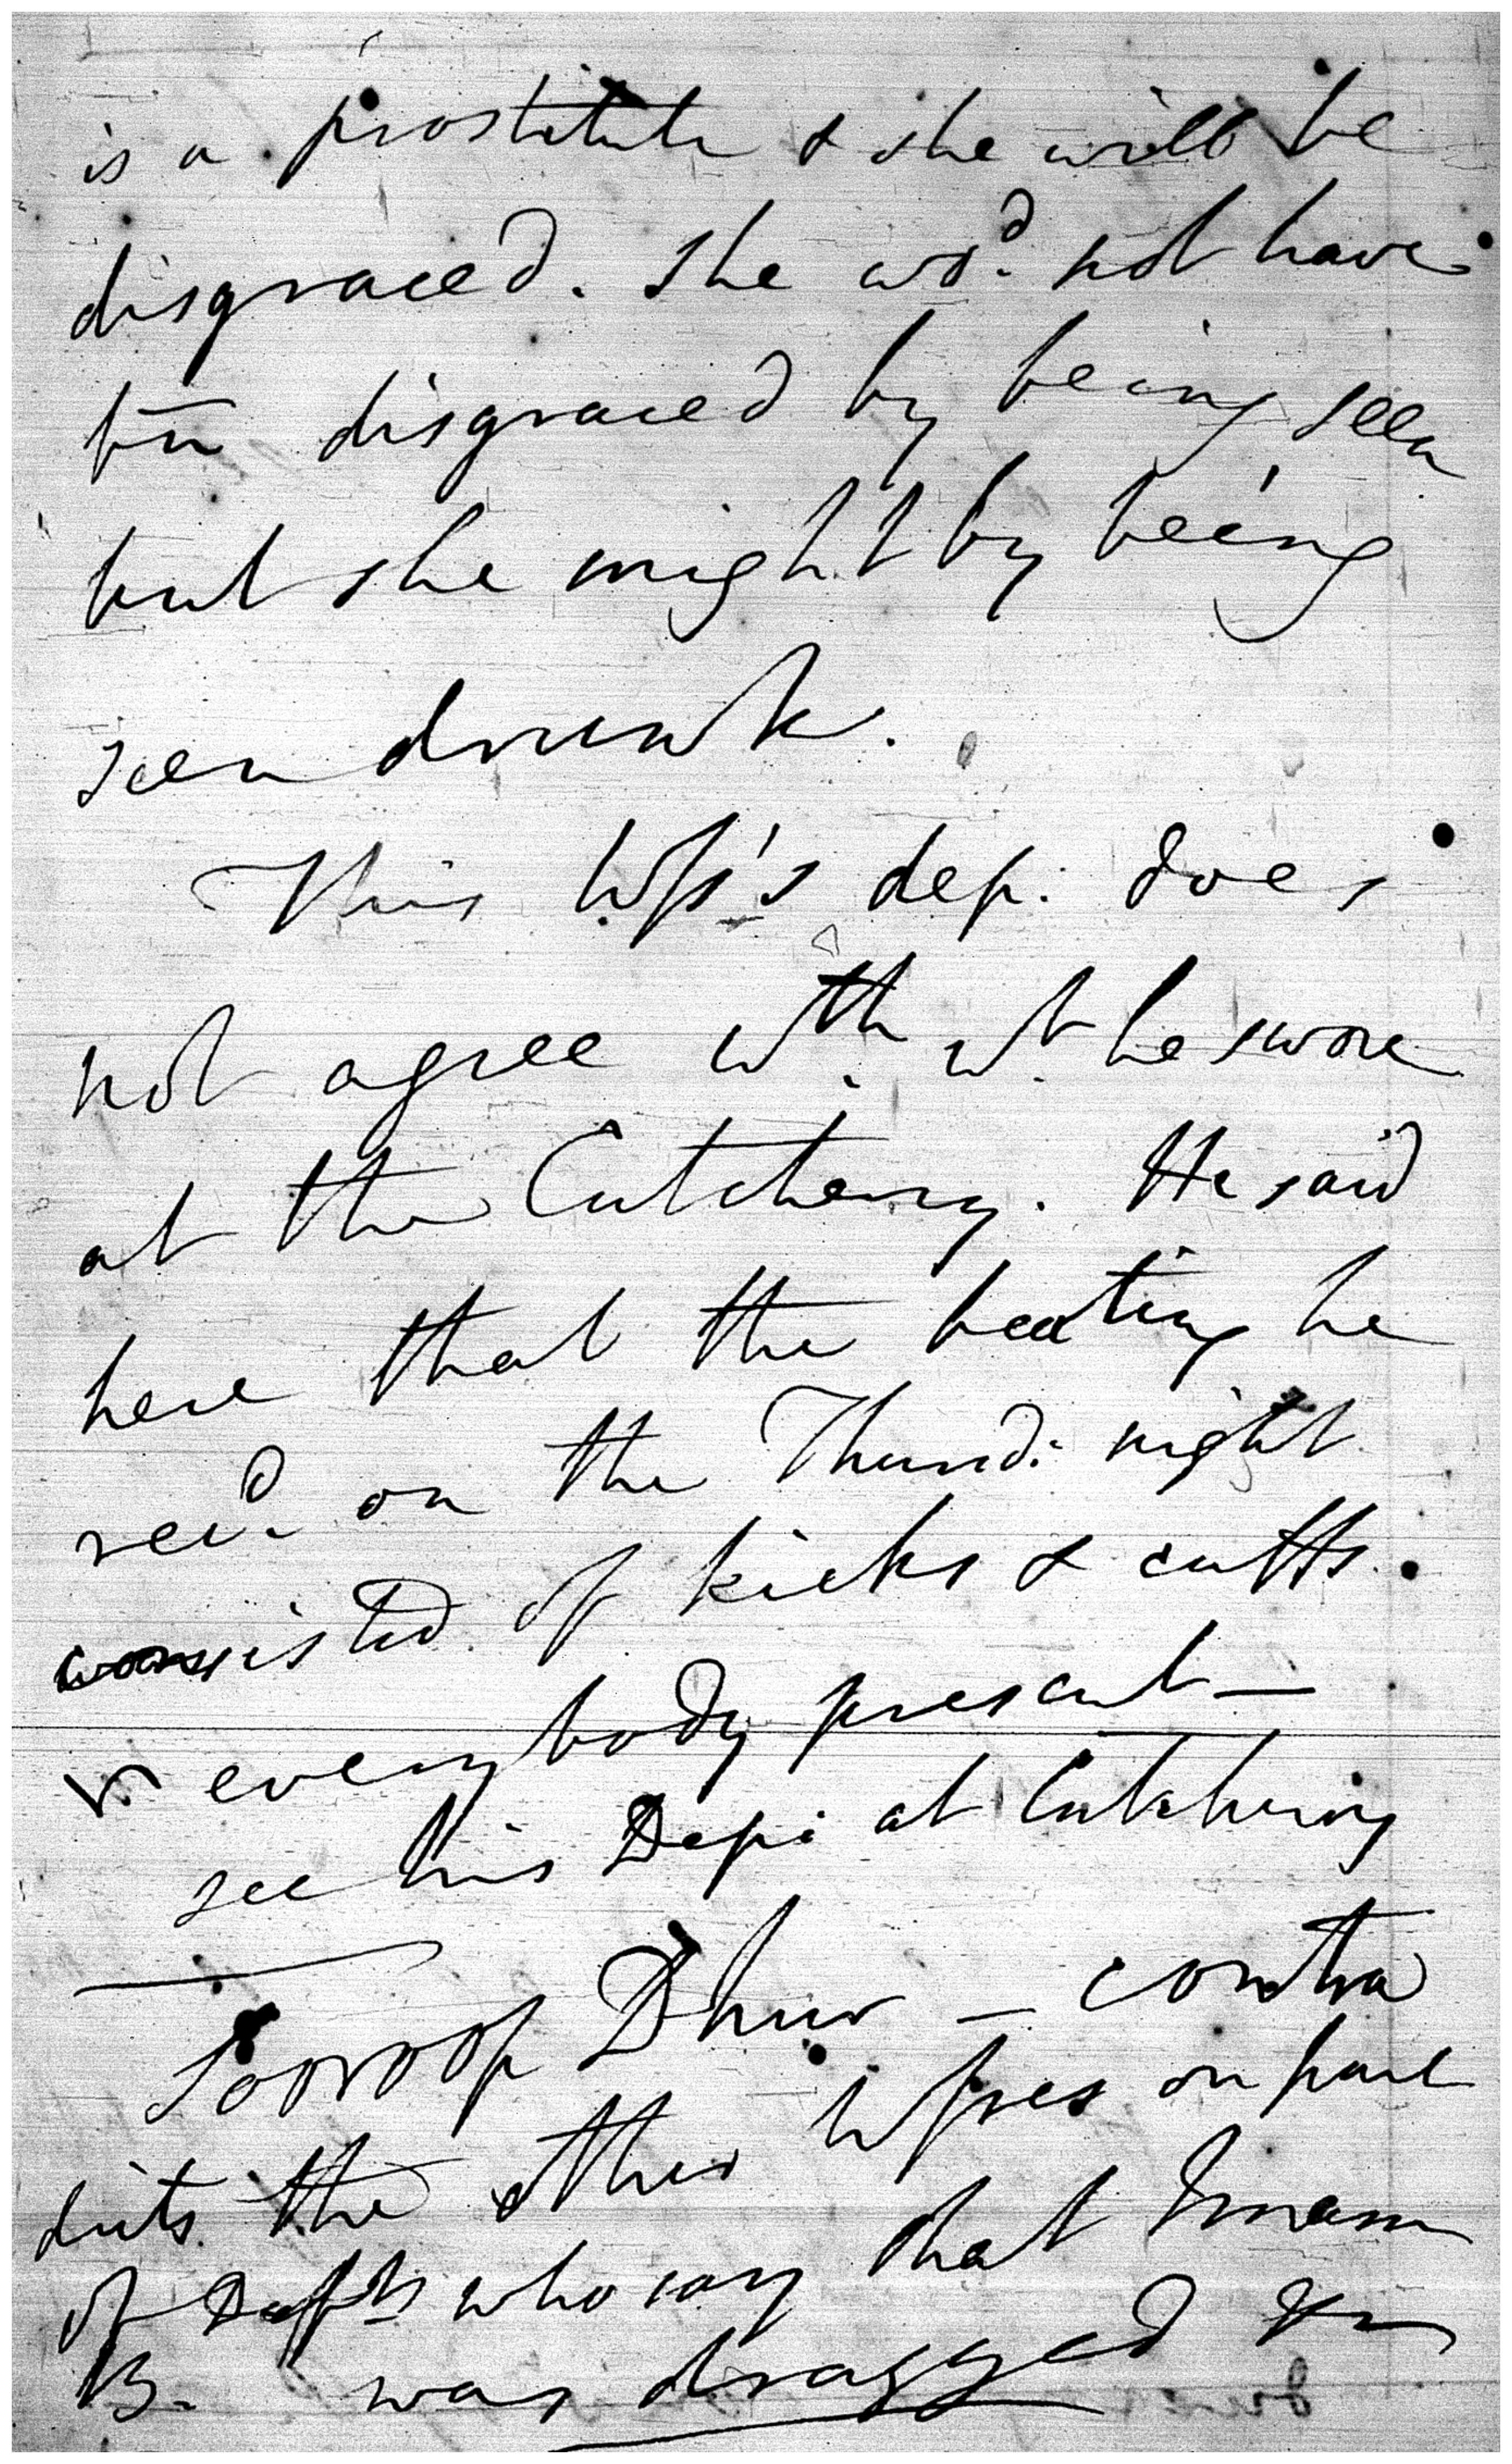 is a prostitute & she will be
disgraced. She wod. not have
bn disgraced by being seen
but she might by being
seen drunk.
This Wss's dep: does
not agree wth. wt. he swore
at the Cutcherry. He said
here that the beating he
recd. on the Thursd: night
consisted of kicks & cuffs.
everybody present —
see his Dep: at Cutcherry
Sooroop Dhur — contra
dicts the other Wsses on part
of Defts who say that Imam
B. was dragged